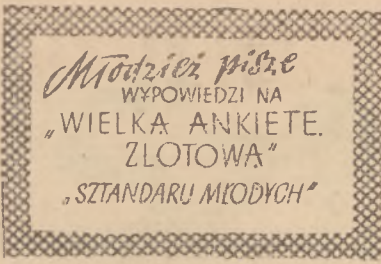 Młodzież pisze
WYPOWIEDZI NA
„WIELKĄ ANKIETĘ.
ZLOTOWĄ"
„SZTANDARU MŁODYCH"